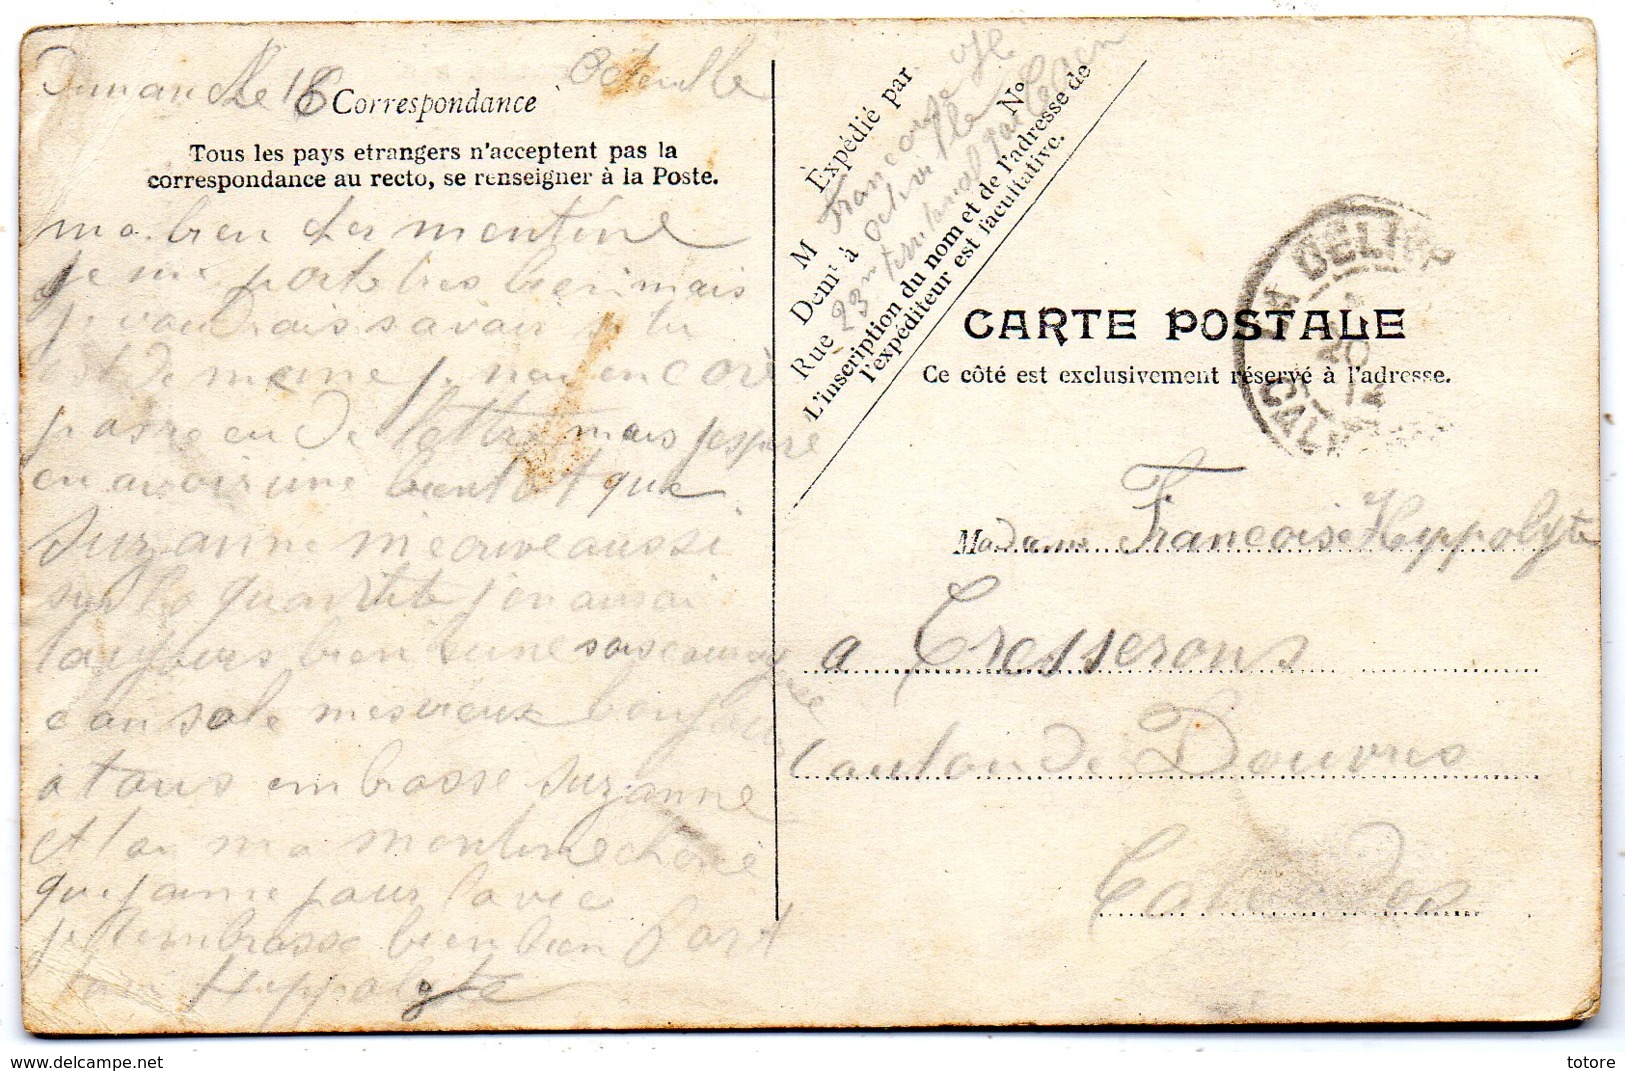 Dimanche 16 Octeville
Correspondance
Tous les pays etrangers n'acceptent pas la
correspondance au recto, se renseigner à la Poste.
ma bien cher mentine
je me porte tres bien mais
je voudrais savoir si tu
est de meme j nou en core
pas re eu de lettre mais jespere
en avoir une bientot que
Suzanne mecrive aussi
sur la quantite j en aurai
toujours bien une sois courage
console mes vieux bonjour
a tous embrasse Suzanne
et ma mentine cherie
que jaime pour la vie
je tembrasse bien bien fort
ton Hyppolyte
Expédié par
M Francoise
Demt à Octeville
Rue 23m territorial Nº
L'inscription du nom et de l'adresse de
l'expéditeur est facultative.
CARTE POSTALE
Ce côté est exclusivement réservé à l'adresse.
LA DELIV
20
14
CALV
Madame Francoise Hyppolyte
a Cresserons
Canton de Douvres
Calvados
delcampe.net
totore